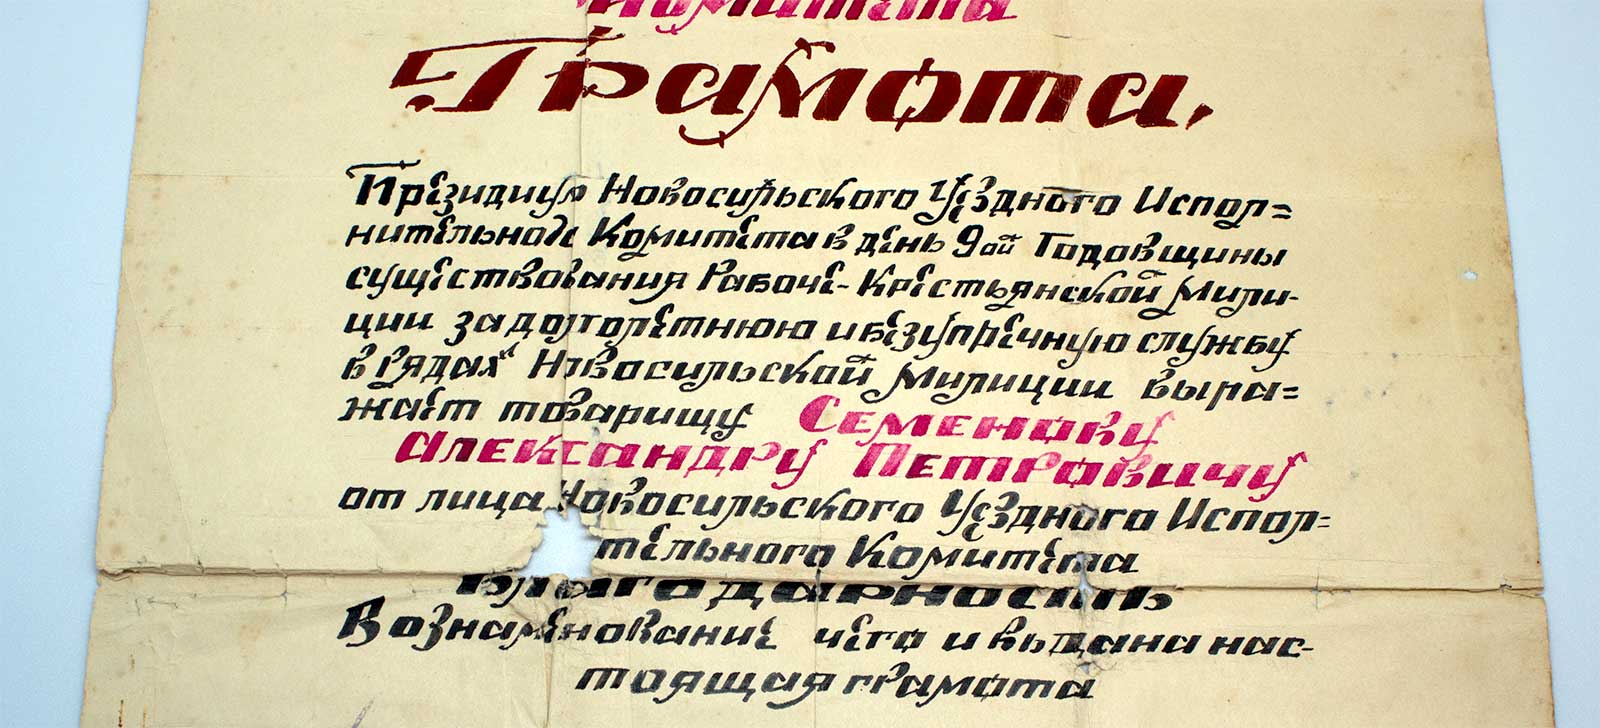 Комитета
Грамота,
Президиум Новосильского Уездного Испол=
нительного Комитета в день 9ой Годовщины
существования Рабоче-Крестьянской Мили-
ции за долголетнюю и безупречную службу
в рядах Новосильской Милиции выра=
жает товарищу Семенову
Александру Петровичу
от лица Новосильского Уездного Испол=
тельного Комитета
Благодарность
В ознаменование чего и выдана нас-
тоящая грамота